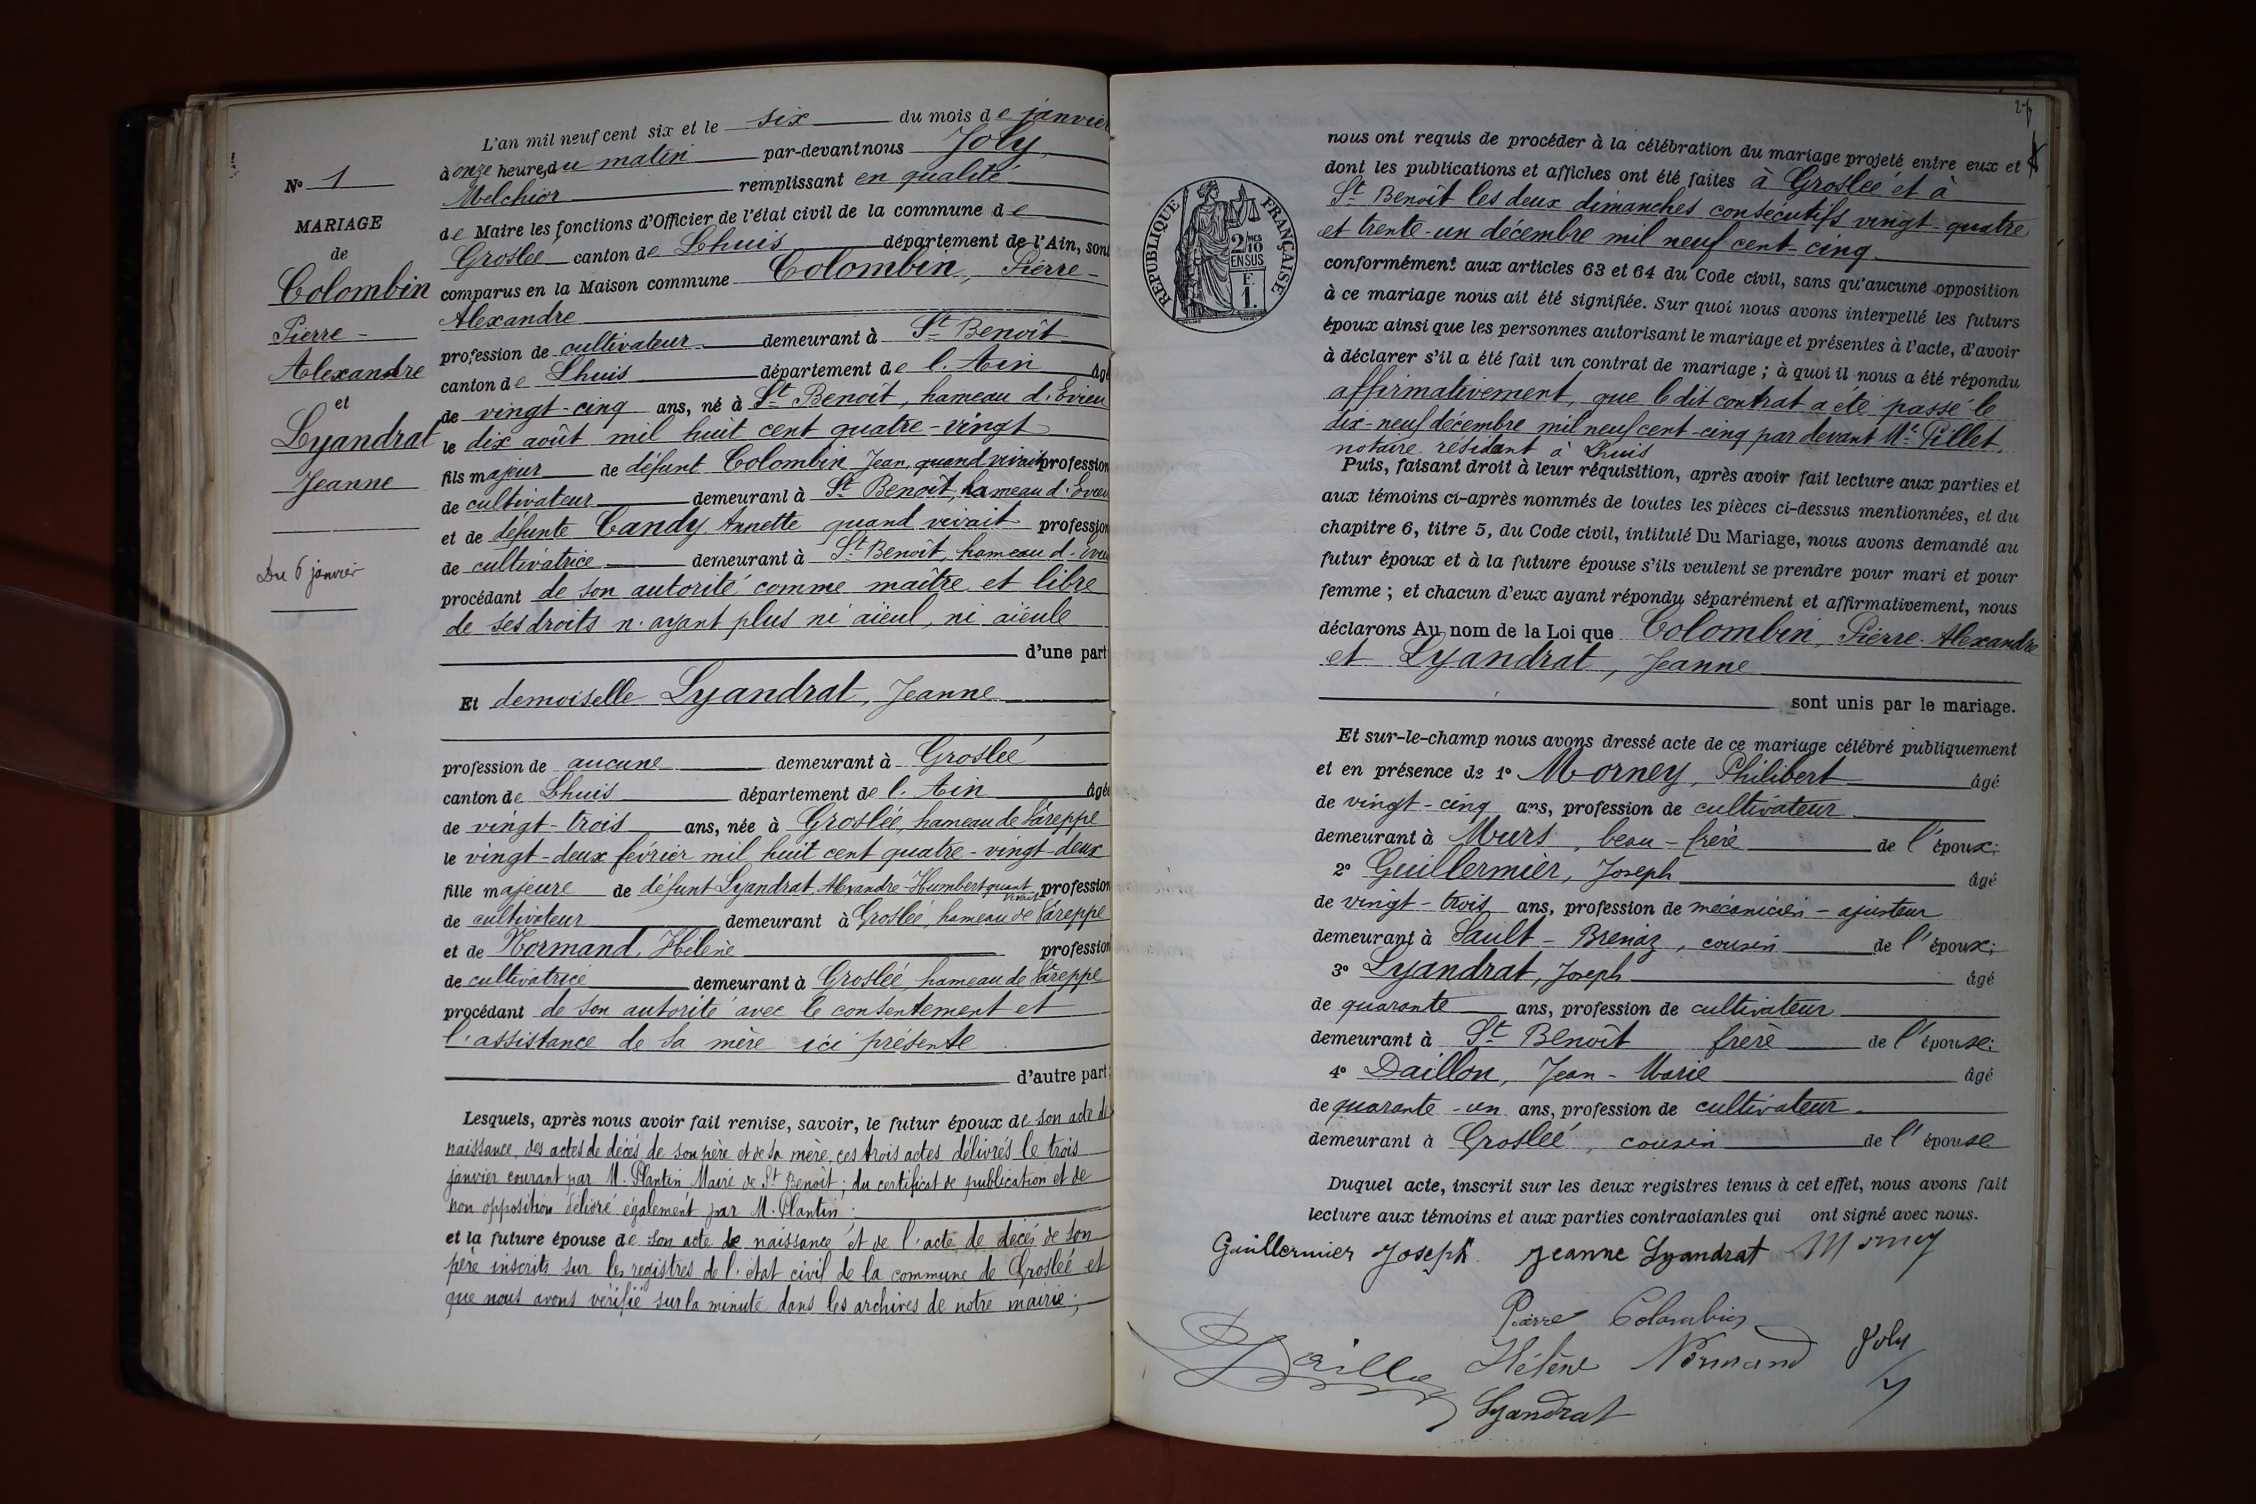 N° 1
MARIAGE
de
Colombin
Pierre -
Alexandre
et
Lyandrat
Jeanne
Du 6 janvier
L'an mil neuf cent six et le six du mois de janvier
à onze heures du matin par-devant nous Joly
Melchior remplissant en qualité
de Maire les fonctions d'Officier de l'état civil de la commune de
Groslée canton de Lhuis département de l'Ain, sont
comparus en la Maison commune Colombin, Pierre-
Alexandre
profession de cultivateur demeurant à St Benoît
canton de Lhuis département de l'Ain âgé
de vingt-cinq ans, né à St Benoît, hameau d'Evieu
le dix août mil huit cent quatre-vingt
fils majeur de défunt Colombin Jean, quand vivait profession
de cultivateur demeurant à St Benoît, hameau d'Evieu
et de défunte Candy Annette quand vivait profession
de cultivatrice demeurant à St Benoît, hameau d'Evieu
procédant de son autorité comme maître et libre
de ses droits n'ayant plus ni aïeul, ni aïeule
d'une part
Et demoiselle Lyandrat, Jeanne
profession de aucune demeurant à Groslée
canton de Lhuis département de l'Ain âgée
de vingt-trois ans, née à Groslée, hameau de Vareppe
le vingt-deux février mil huit cent quatre-vingt-deux
fille majeure de défunt Lyandrat, Alexandre-Humbert quant vivait profession
de cultivateur demeurant à Groslée, hameau de Vareppe
et de Normand, Hélène profession
de cultivatrice demeurant à Groslée, hameau de Vareppe
procédant de son autorité avec le consentement et
l'assistance de sa mère ici présente
d'autre part;
Lesquels, après nous avoir fait remise, savoir, le futur époux de son acte de
naissance, des actes de décès de son père et de sa mère, ces trois actes délivrés le trois
janvier courant par M. Plantin Maire de St Benoît; du certificat de publication et de
non opposition délivré également par M. Plantin;
et la future épouse de son acte de naissance et de l'acte de décès de son
père inscrits sur les registres de l'état civil de la commune de Groslée et
que nous avons vérifié sur la minute dans les archives de notre mairie;
RÉPUBLIQUE FRANÇAISE
2/10
EN SUS
F.
1.
nous ont requis de procéder à la célébration du mariage projeté entre eux et
dont les publications et affiches ont été faites à Groslée et à
St Benoît les deux dimanches consécutifs vingt-quatre
et trente-un décembre mil neuf cent-cinq
conformément aux articles 63 et 64 du Code civil, sans qu'aucune opposition
à ce mariage nous ait été signifiée. Sur quoi nous avons interpellé les futurs
époux ainsi que les personnes autorisant le mariage et présentes à l'acte, d'avoir
à déclarer s'il a été fait un contrat de mariage; à quoi il nous a été répondu
affirmativement, que le dit contrat a été passé le
dix-neuf décembre mil neuf cent-cinq par devant Me Pillet,
notaire résidant à Lhuis
Puis, faisant droit à leur réquisition, après avoir fait lecture aux parties et
aux témoins ci-après nommés de toutes les pièces ci-dessus mentionnées, et du
chapitre 6, titre 5, du Code civil, intitulé Du Mariage, nous avons demandé au
futur époux et à la future épouse s'ils veulent se prendre pour mari et pour
femme; et chacun d'eux ayant répondu séparément et affirmativement, nous
déclarons Au nom de la Loi que Colombin, Pierre-Alexandre
et Lyandrat, Jeanne
sont unis par le mariage.
Et sur-le-champ nous avons dressé acte de ce mariage célébré publiquement
et en présence de 1° Morney, Philibert âgé
de vingt-cinq ans, profession de cultivateur
demeurant à Murs, beau-frère de l'époux;
2° Guillermier, Joseph âgé
de vingt-trois ans, profession de mécanicien-ajusteur
demeurant à Sault-Brenaz, cousin de l'époux;
3° Lyandrat, Joseph âgé
de quarante ans, profession de cultivateur
demeurant à St Benoît frère de l'épouse;
4° Daillon, Jean-Marie âgé
de quarante-un ans, profession de cultivateur
demeurant à Groslée, cousin de l'épouse
Duquel acte, inscrit sur les deux registres tenus à cet effet, nous avons fait
lecture aux témoins et aux parties contractantes qui ont signé avec nous.
Guillermier Joseph Jeanne Lyandrat Morney
Pierre Colombin
Hélène Normand Joly
Lyandrat